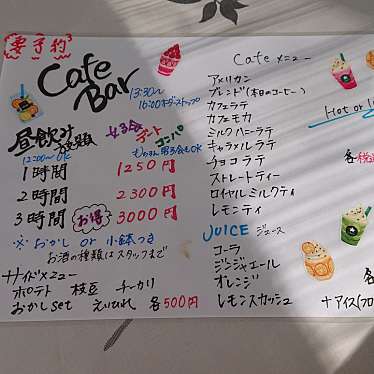 要予約
Cafe
Bar
13:30〜
16:00オーダーストップ
昼飲み
放題
女子会
デート
コンパ
12:00〜OK
もちろん男子会もOK
1時間 1250円
2時間 2300円
3時間 お得 3000円
※おかし or 小鉢つき
お酒の種類はスタッフまで
サイドメニュー
ポテト 枝豆 チーカリ
おかしset えいひれ 各500円
Cafe メニュー
アメリカン
ブレンド(本日のコーヒー)
カフェラテ
カフェモカ
ミルクバニーラテ
キャラメルラテ
チョコラテ
ストレートティー
ロイヤルミルクティ
レモンティ
Hot or
各税
JUICE ジュース
コーラ
ジンジャエール
オレンジ
レモンスカッシュ
各
+アイス(フロ